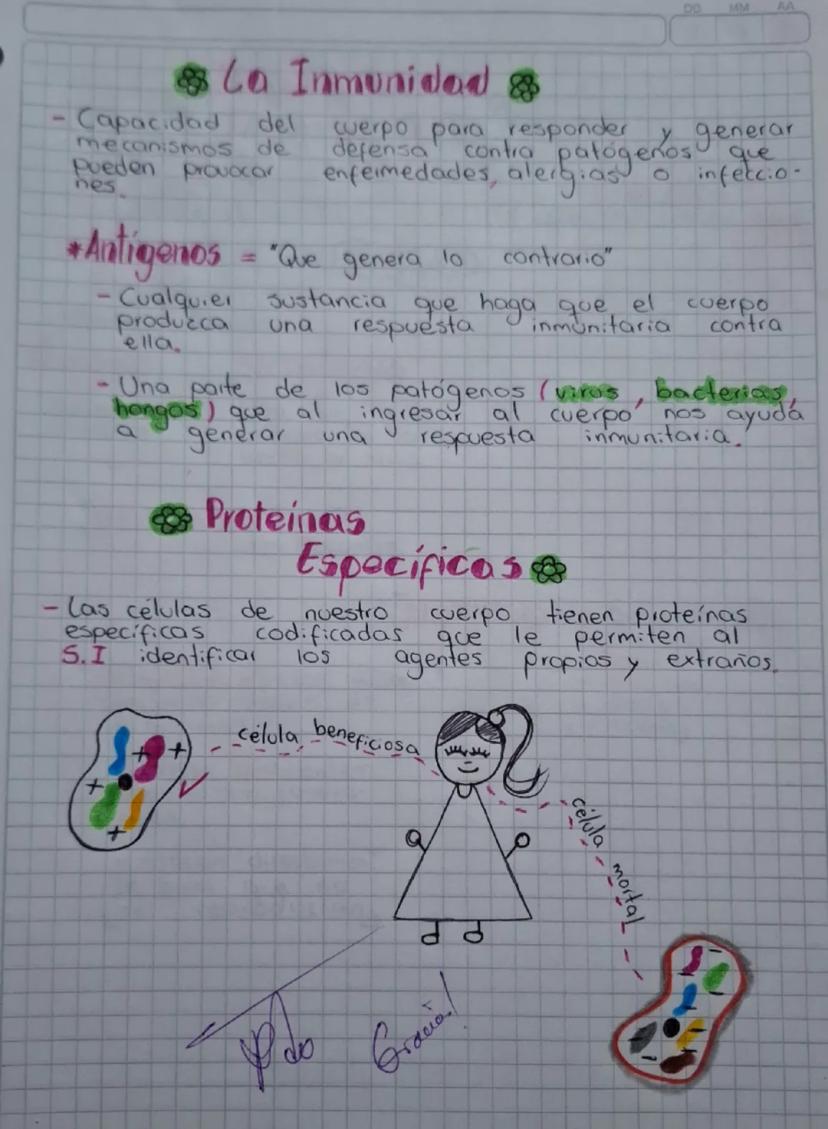 DD MM AA
La Inmunidad
- Capacidad del cuerpo para responder y generar
mecanismos de defensa contra patógenos que
pueden provocar enfermedades, alergias o infeccio-
nes.
*Antígenos = "Que genera lo contrario"
- Cualquier sustancia que haga que el cuerpo
produzca una respuesta inmunitaria contra
ella.
- Una parte de los patógenos (virus, bacterias,
hongos) que al ingresar al cuerpo nos ayuda
a generar una respuesta inmunitaria.
Proteínas
Específicas
- Las células de nuestro cuerpo tienen proteínas
específicas codificadas que le permiten al
S.I identificar los agentes propios y extraños.
célula beneficiosa
célula mortal